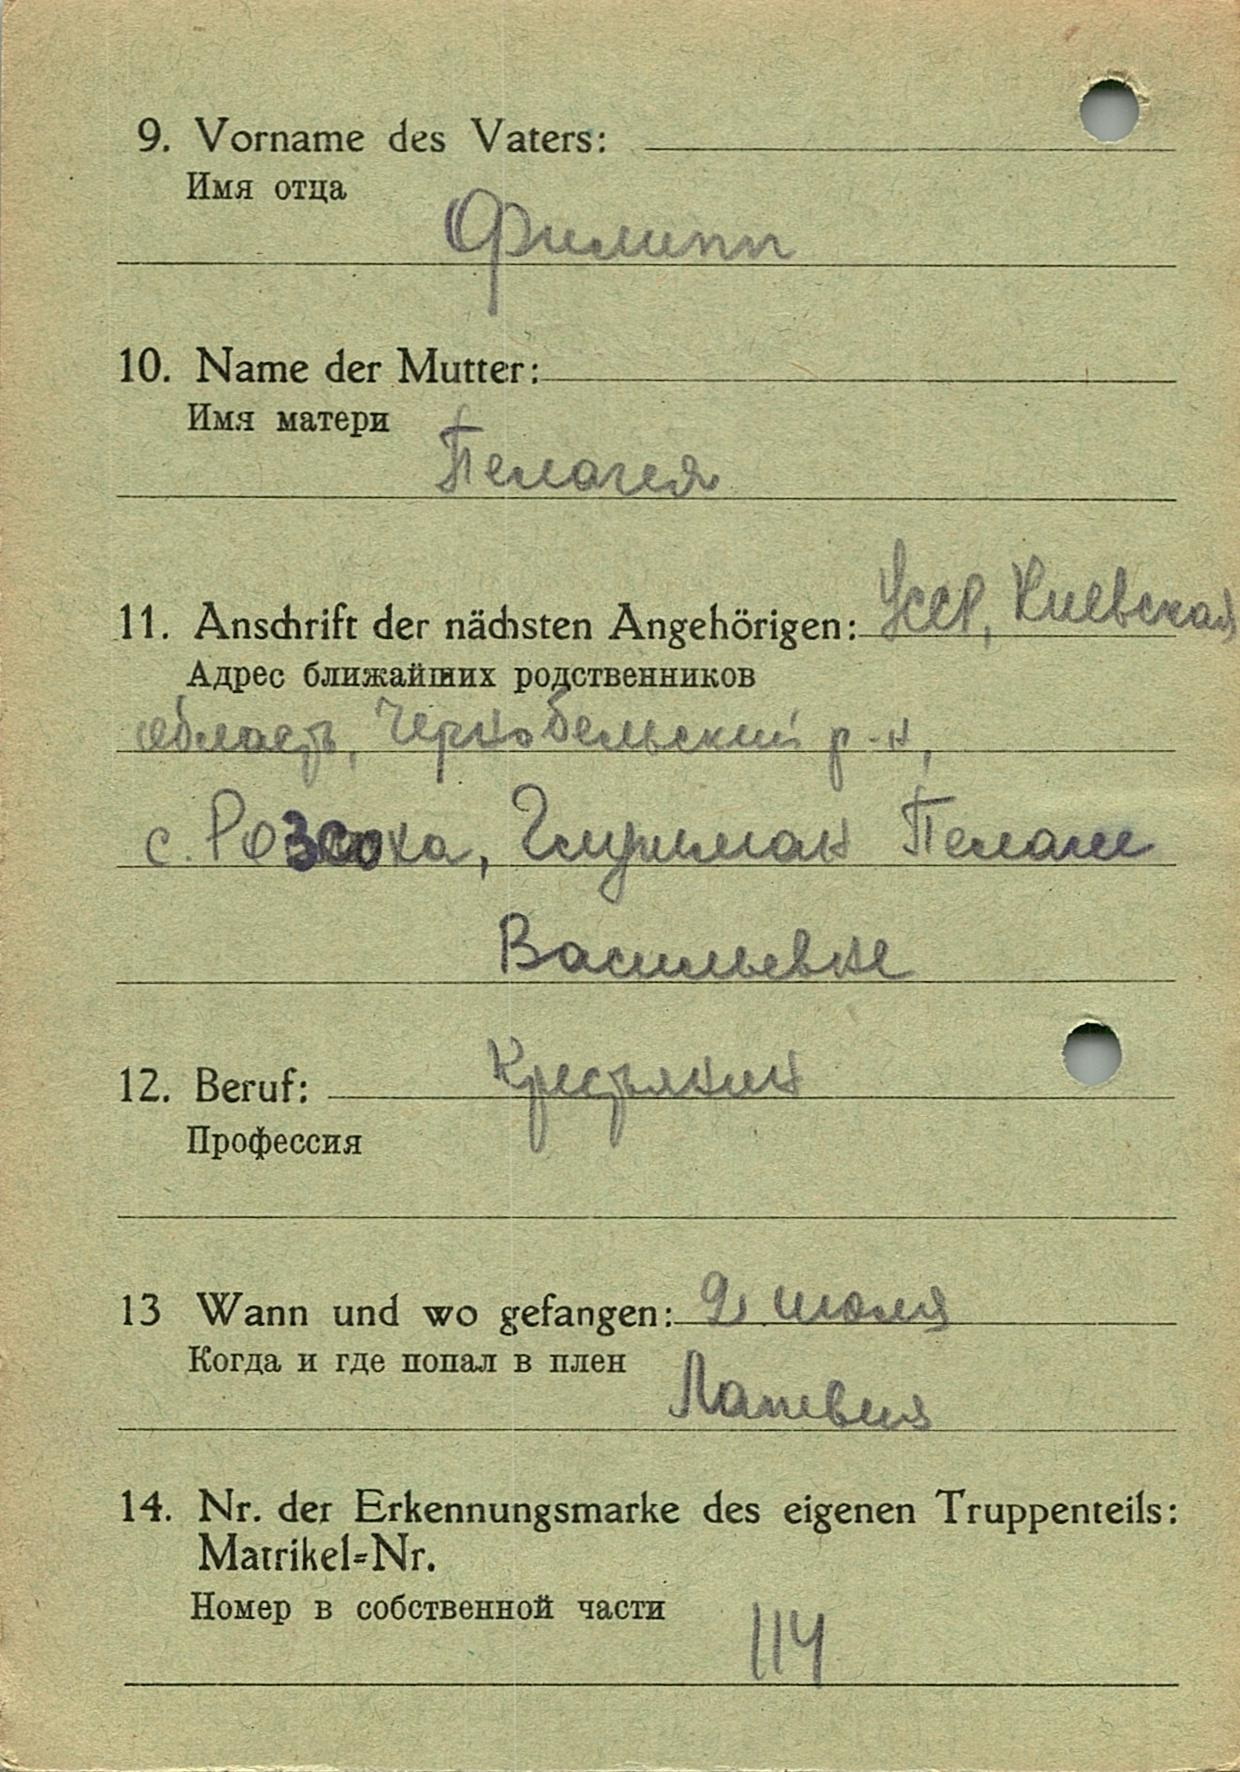 9. Vorname des Vaters:
Имя отца
Филипп
10. Name der Mutter:
Имя матери
Пелагея
11. Anschrift der nächsten Angehörigen: УССР, Киевская
Адрес ближайших родственников
область, Чернобельский р-н,
с. Розсоха, Пелагее
Васильевне
12. Beruf: Крестьянин
Профессия
13 Wann und wo gefangen: 2 июля
Когда и где попал в плен
Латвия
14. Nr. der Erkennungsmarke des eigenen Truppenteils:
Matrikel=Nr.
Номер в собственной части
114